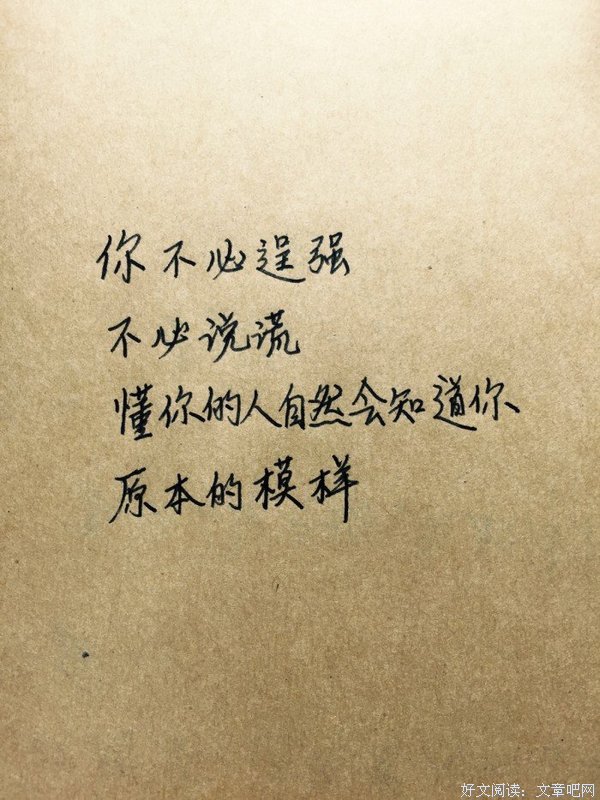 你不必逞强
不必说谎
懂你的人自然会知道你
原本的模样
好文阅读：文章吧网